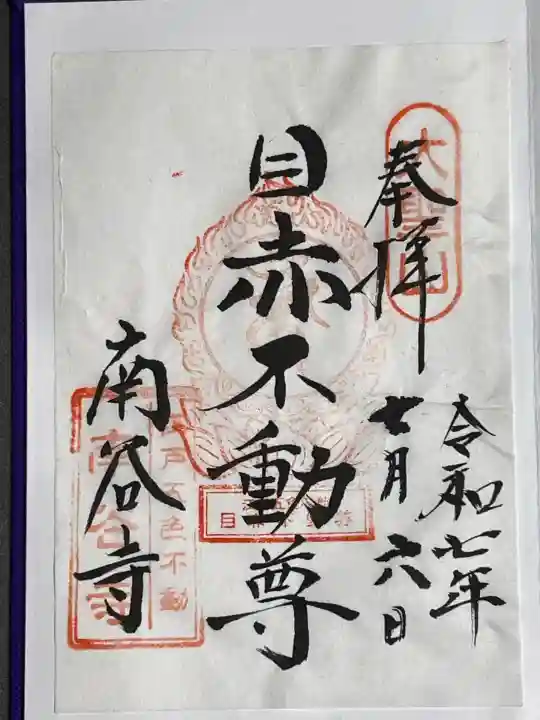 奉拝
大聖山
令和七年
七月六日
目赤不動尊
南谷寺
江戸五色不動
南谷寺